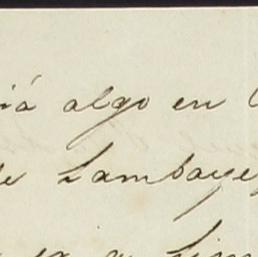 iá algo en
de Lambaye